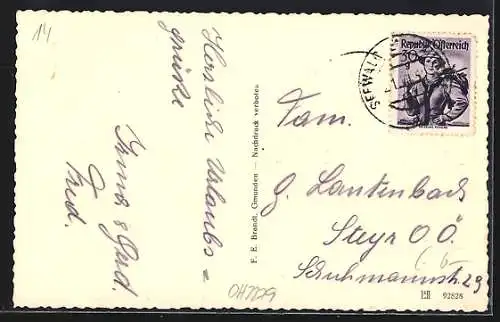 14
Herzliche Urlaubs =
grüße
Irma & Gard.
Fred.
F. E. Brandt, Gmunden — Nachdruck verboten
Republik Österreich
30
g
SEEWALC
Fam.
G. Lautenbach
Steyr O.Ö.
Schuhmannstr. 29
OH7729
92828